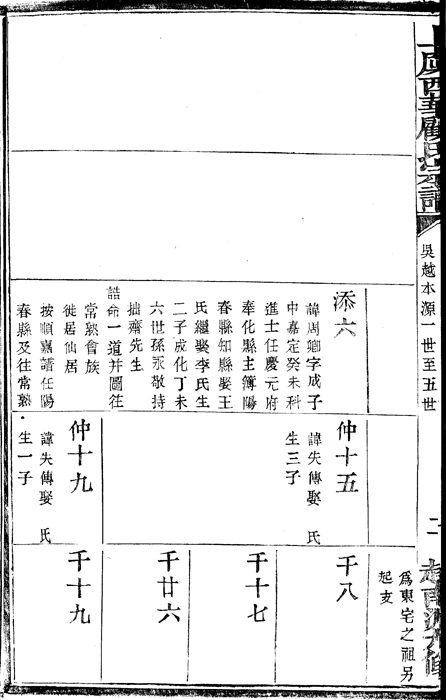 上虞西華顧氏宗譜
吳越本源一世至五世
二
添六
諱周卿字成子
中嘉定癸未科
進士任慶元府
奉化縣主簿陽
春縣知縣娶王
氏繼娶李氏生
二子成化丁未
六世孫永敬持
拙齋先生
誥命一道并圖往
常熟會族
徙居仙居
按順嘉譜任陽
春縣及往常熟
仲十五
諱失傳娶 氏
生三子
仲十九
諱失傳娶 氏
生一子
爲東宅之祖另
起支
千八
千十七
千廿六
千十九